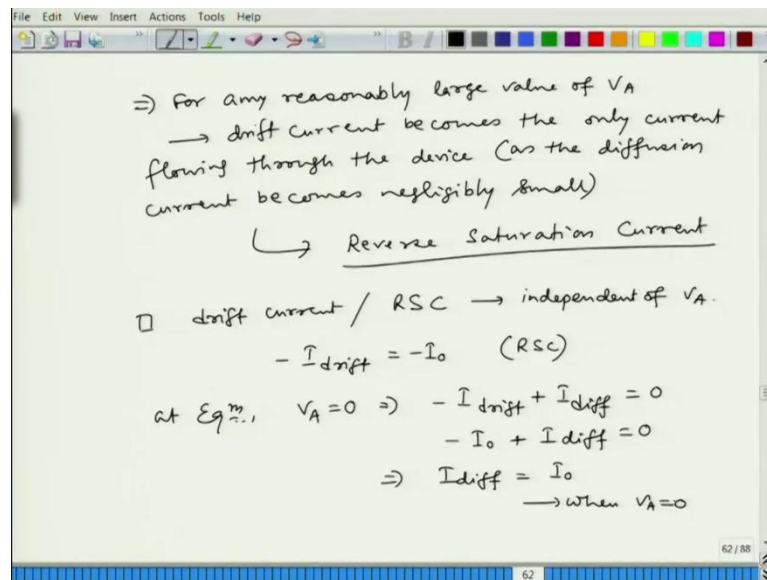 File Edit View Insert Actions Tools Help
=) For any reasonably large value of VA
→ drift current becomes the only current
flowing through the device (as the diffusion
current becomes negligibly small)
↳ Reverse Saturation Current
□ drift current / RSC → independent of VA.
- Idrift = -I0 (RSC)
at Eqm., VA=0 =) - Idrift + Idiff = 0
- I0 + Idiff = 0
=) Idiff = I0
→ when VA=0
62 / 88
62